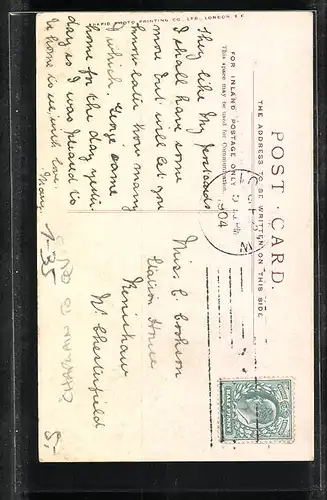 RAPID PHOTO PRINTING CO. LTD., LONDON, E.C.
POST CARD.
THE ADDRESS TO BE WRITTEN ON THIS SIDE
FOR INLAND POSTAGE ONLY
This space may be used for Communication.
They like my postcards
I shall have some
more but will let you
know later how many
I wish, George came
home for the day yester
day so I was pleased to
be home to see, with love
Mary.
1904
Miss C. Cookson
Station House
Renishaw
Nr Chesterfield
5,-